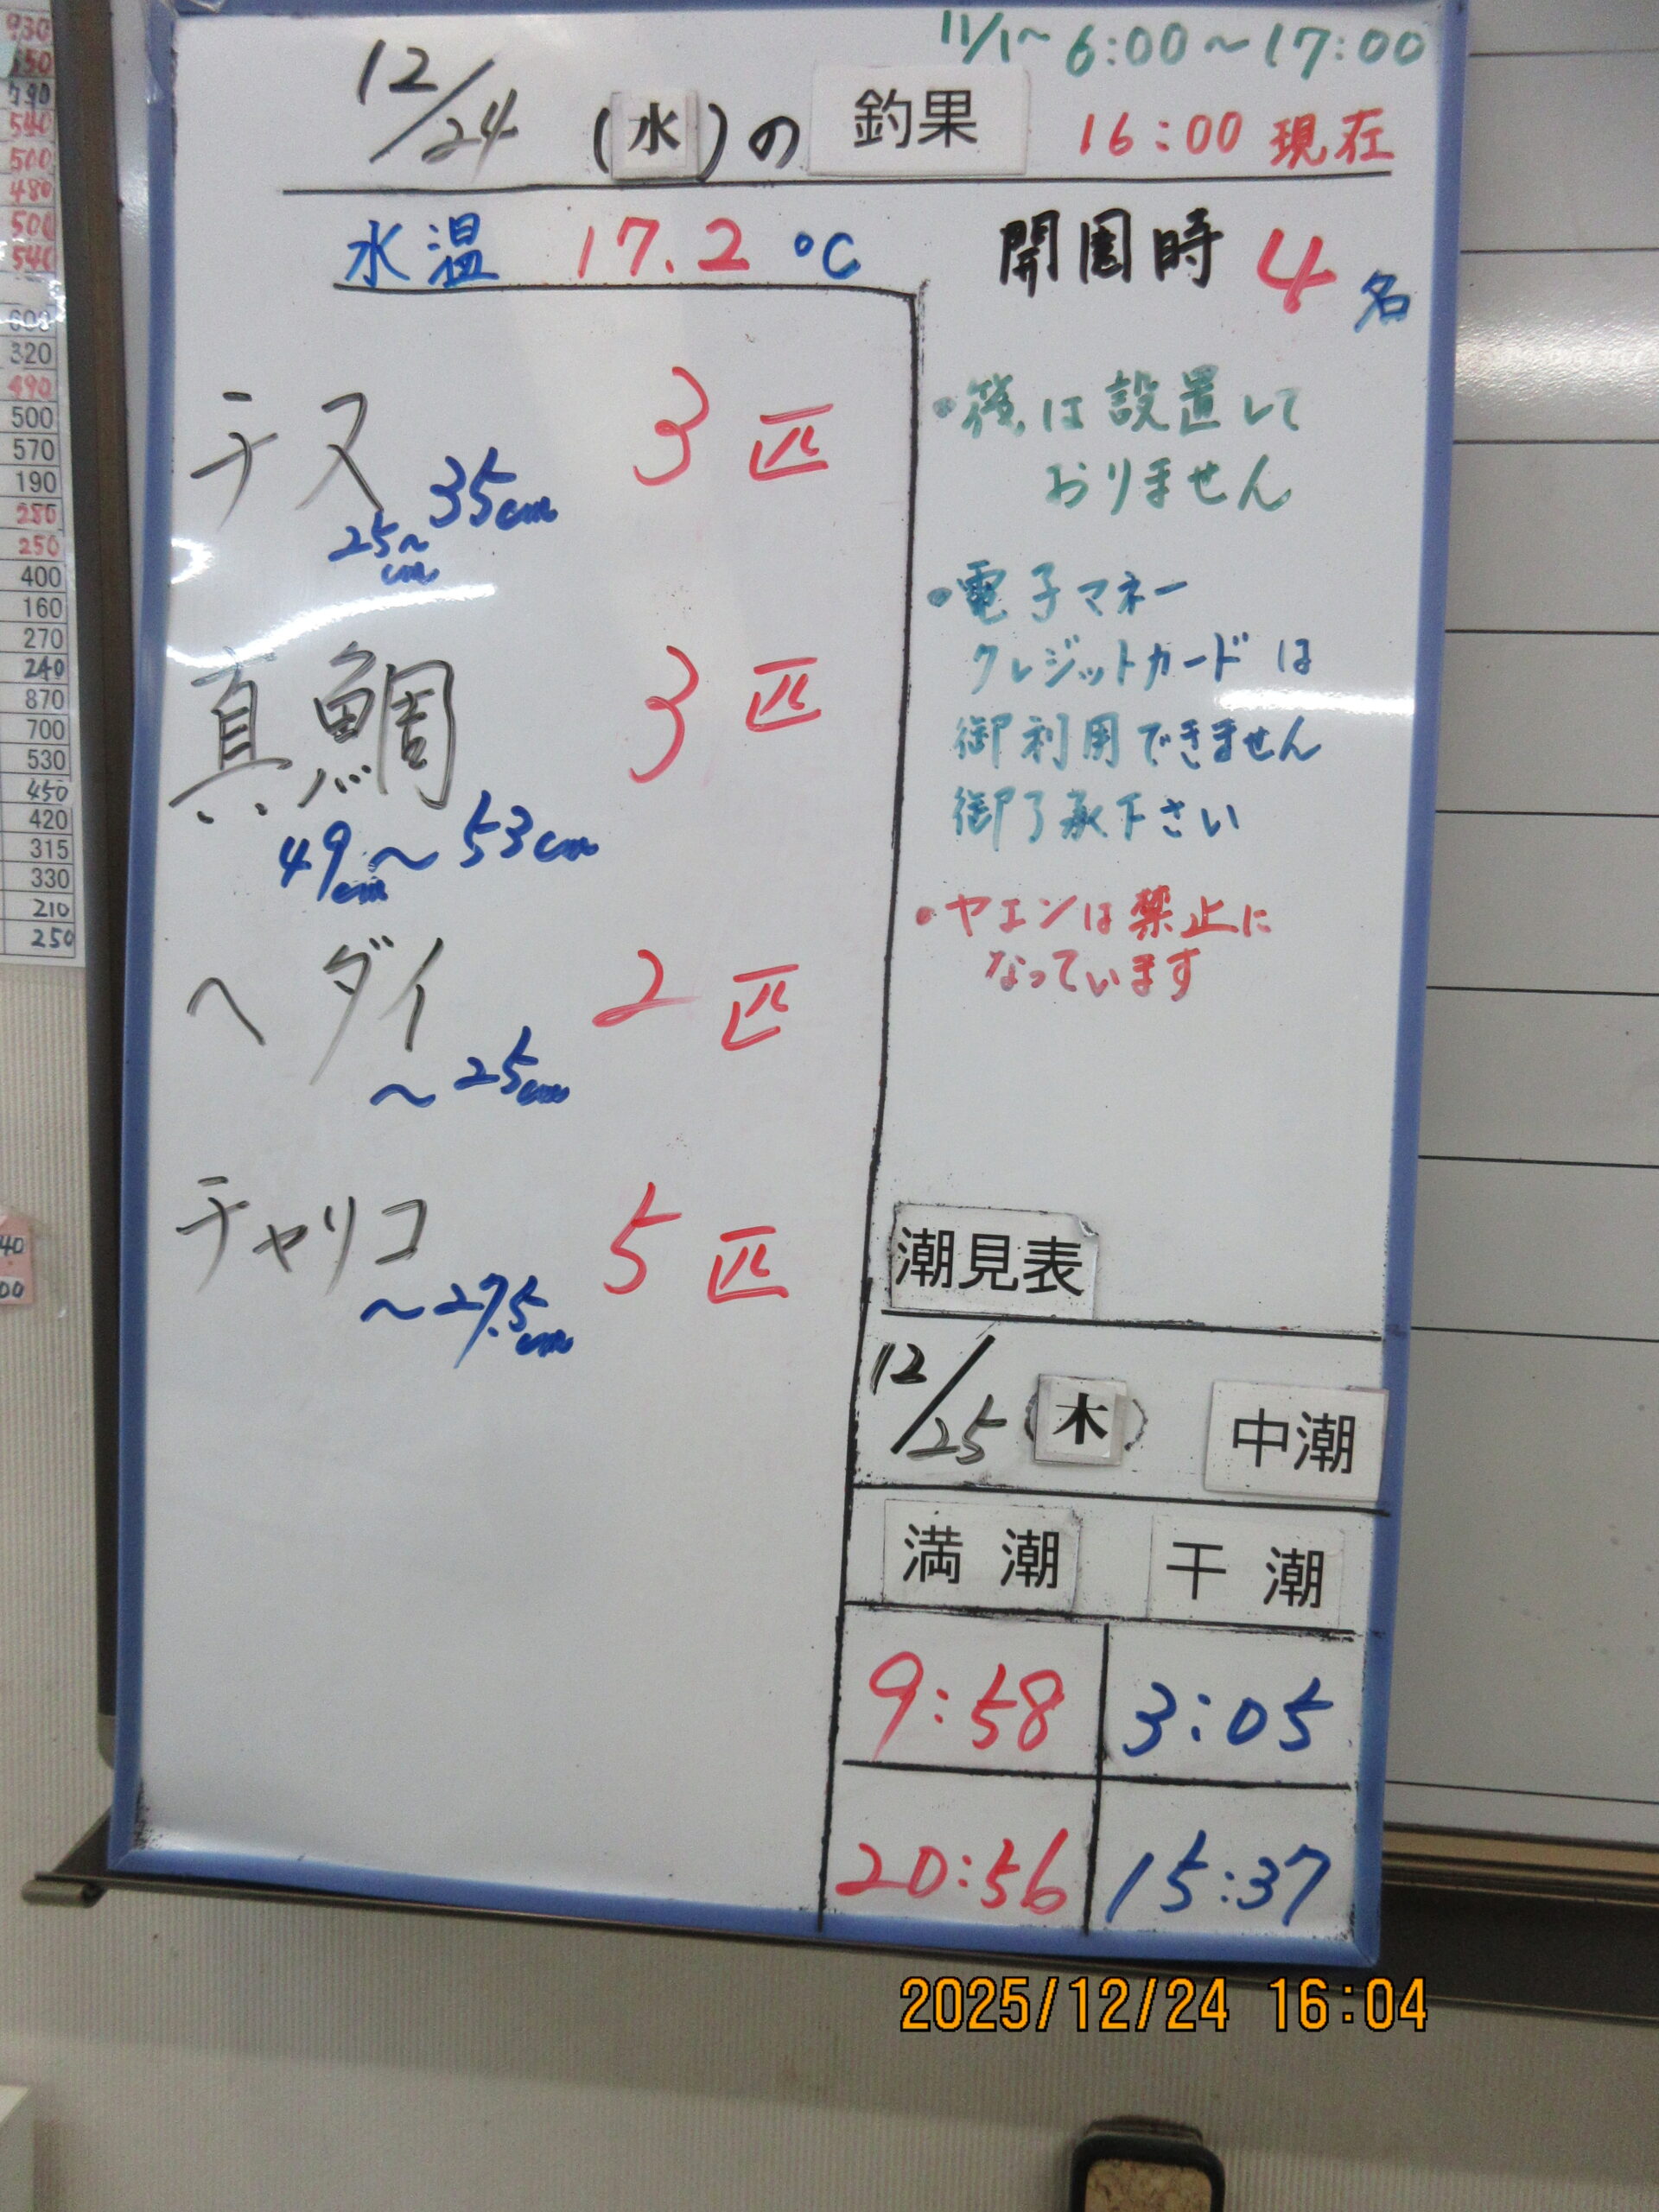 11/1～ 6:00～17:00
12/24 (水)の 釣果 16:00 現在
水温 17.2 ℃
開園時 4名
チヌ 3匹
25cm～35cm
真鯛 3匹
49cm～53cm
ヘダイ 2匹
～25cm
チャリコ 5匹
～27.5cm
・筏は設置して
おりません
・電子マネー
クレジットカードは
御利用できません
御了承下さい
・ヤエンは禁止に
なっています
潮見表
12/25 (木) 中潮
満潮 干潮
9:58 3:05
20:56 15:37
2025/12/24 16:04
930
650
790
540
500
480
500
540
600
320
490
500
570
190
280
250
400
160
270
240
870
700
530
450
420
315
330
210
250